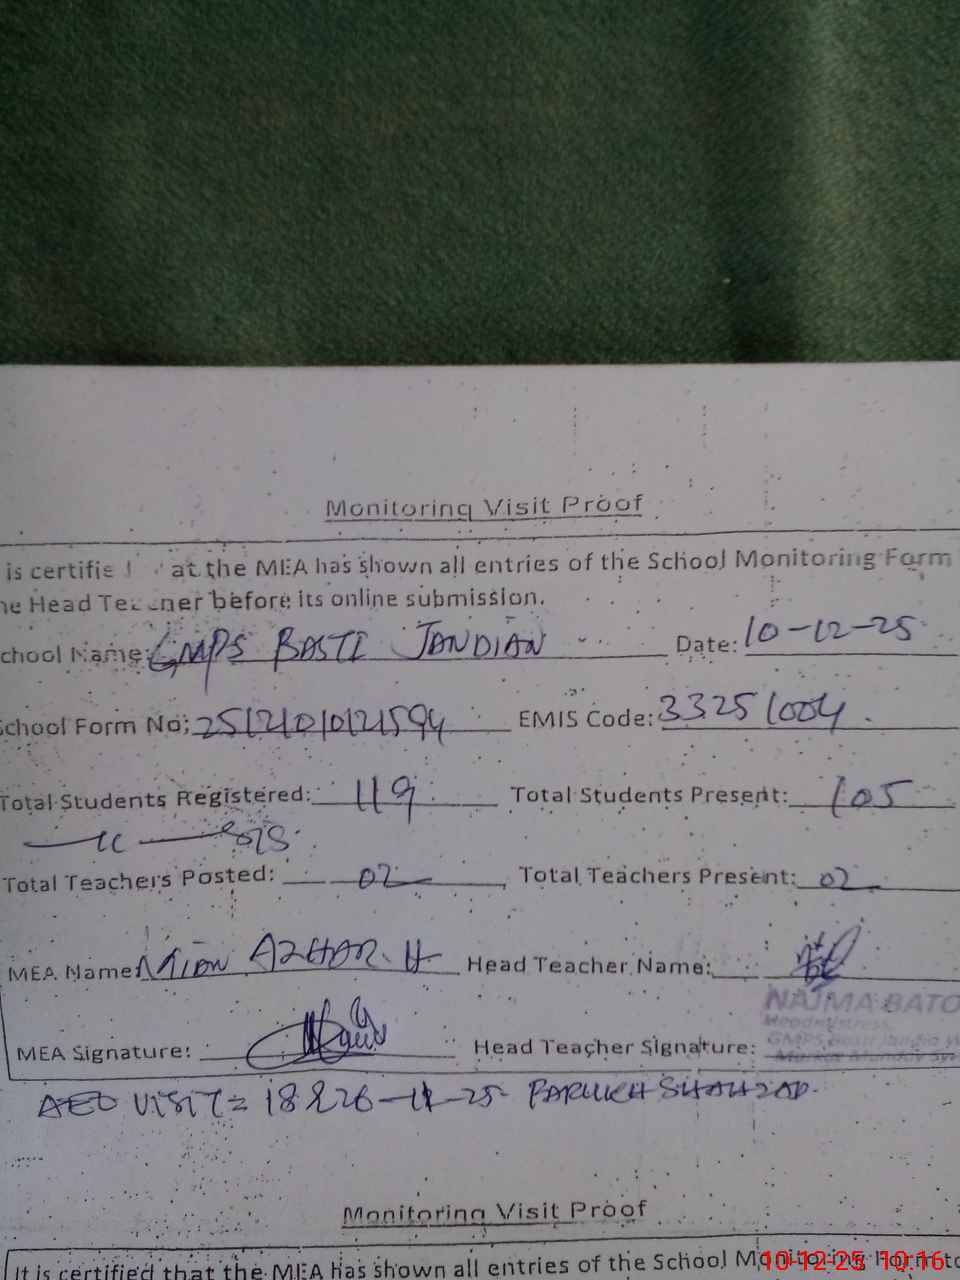 Monitoring Visit Proof
is certifie at the MEA has shown all entries of the School Monitoring Form
he Head Teacher before its online submission.
School Name: GMPS BASTI JANDIAN Date: 10-12-25
School Form No: EMIS Code: 33251004
Total Students Registered: 119 Total Students Present: 105
Total Teachers Posted: 02 Total Teachers Present: 02
MEA Name Mian AZHAR.H Head Teacher Name:
NAJMA BATO
Headmistress,
GMPS Basti Jandia
MEA Signature: Head Teacher Signature:
AEO VISIT = 18 & 26-11-25 FARUKH SHAHZAD.
Monitoring Visit Proof
It is certified that the MEA has shown all entries of the School Monitoring Form to
10-12-25 10:16